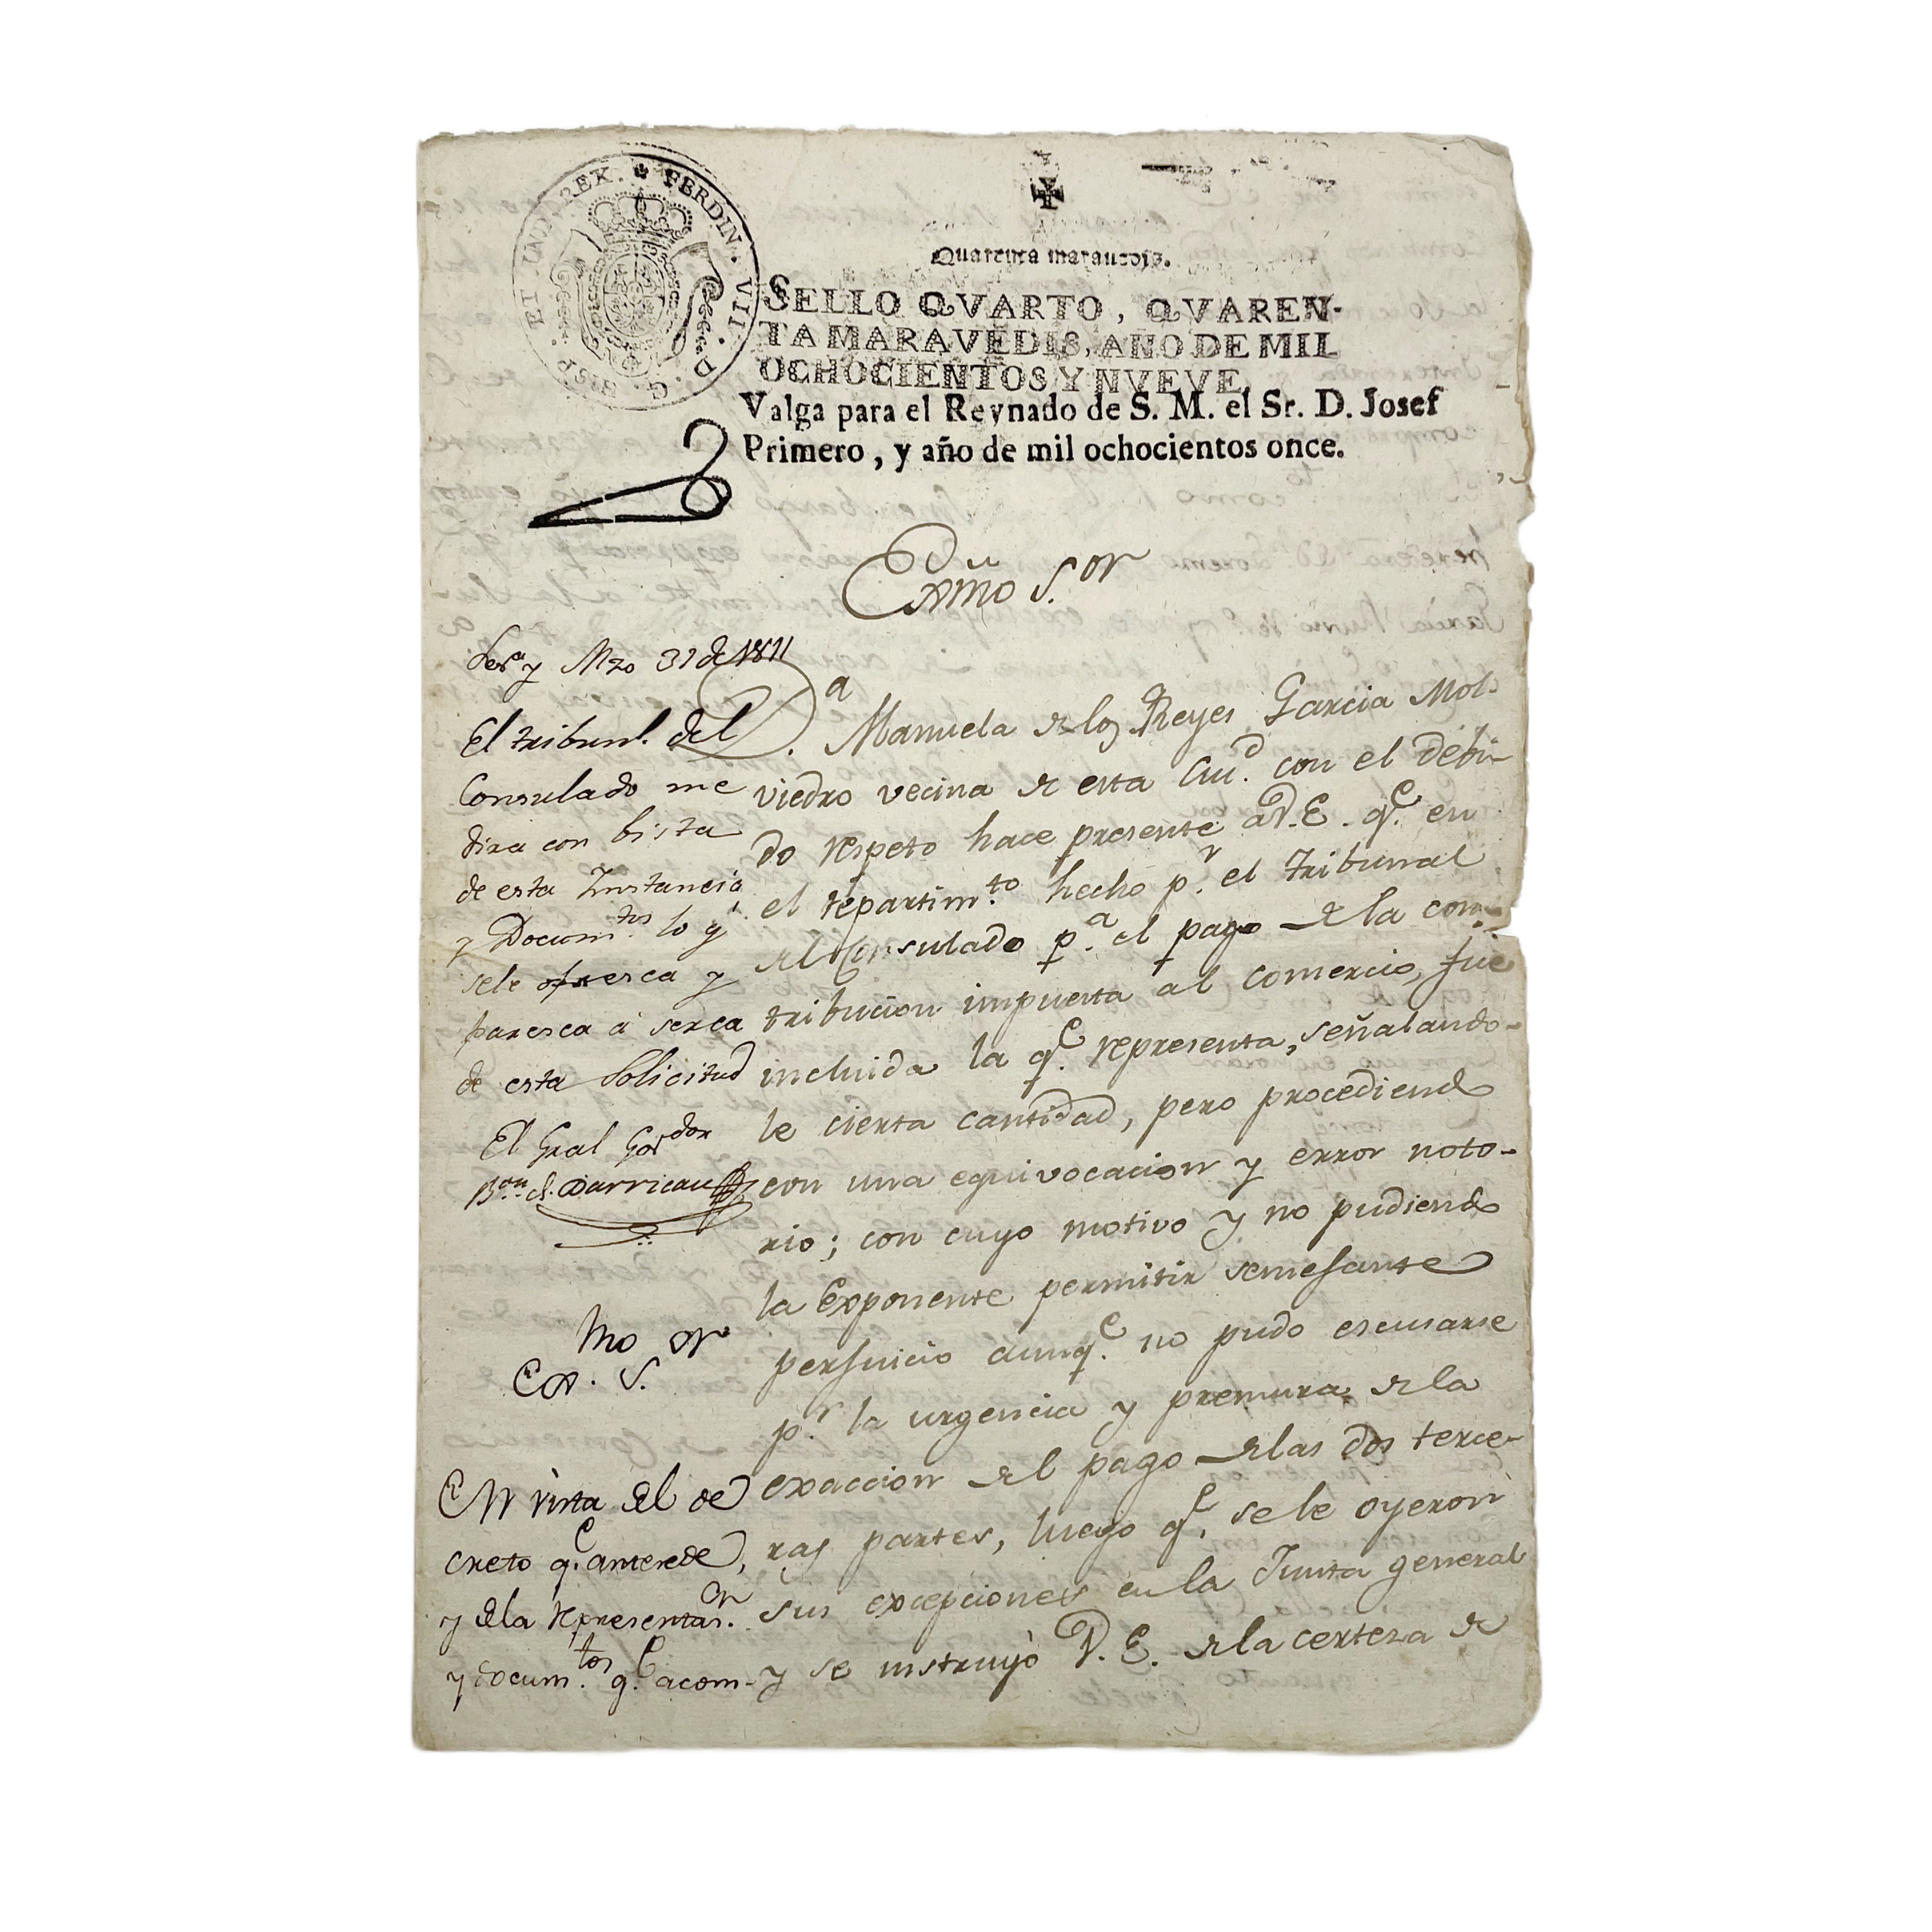 FERDIN. VII. D. G. HISP. ET IND. REX.
Quarenta maravedis.
SELLO QVARTO, QVAREN-
TA MARAVEDIS, AÑO DE MIL
OCHOCIENTOS Y NVEVE.
Valga para el Reynado de S. M. el Sr. D. Josef
Primero, y año de mil ochocientos once.
Exmo S.or
D.a Manuela de los Reyes Garcia Mol-
viedro vecina de esta Ciu.d con el debi-
do respeto hace presente a V.E. q.e en
el repartim.to hecho p.r el tribunal
del Consulado p.a el pago de la con-
tribucion impuesta al comercio, fue
incluida la q.e representa, señalando-
le cierta cantidad, pero procediendo
con una equivocacion y error noto-
rio; con cuyo motivo y no pudiendo
la Exponente permitir semejante
perjuicio aunq.e no pudo escusarse
p.r la urgencia y premura de la
exaccion del pago de las dos terce-
ras partes, luego q.e se le oyeron
sus excepciones en la Junta general
y se instruyò V. E. de la certeza de
Mzo 31 de 1811
El tribunl. del
Consulado me
dira con bista
de esta Instancia
y Docum.tos lo q
sele ofresca y
paresca à serca
de esta Solicitud
El Gral Gor.dor
B.on d. Darricau
Ex.mo S.or
En vista del de
creto q.e antesede,
y dela representas.on
y docum.tos q.e acom-